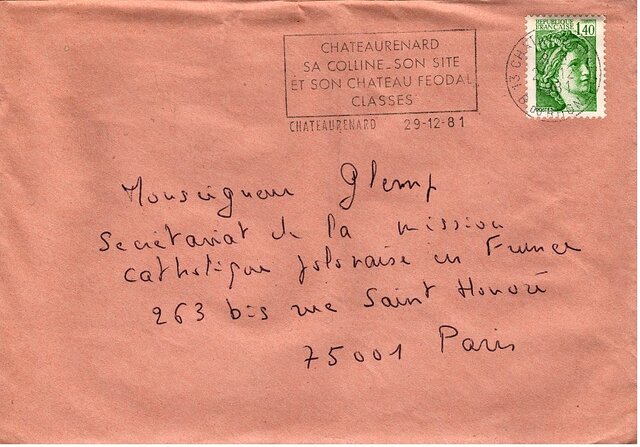 CHATEAURENARD
SA COLLINE_SON SITE
ET SON CHATEAU FEODAL
CLASSES
CHATEAURENARD 29-12-81
REPUBLIQUE
FRANÇAISE
1,40
13 CHAT
Monseigneur Glemp
Secrétariat de la mission
catholique polonaise en France
263 bis rue Saint Honoré
75001 Paris